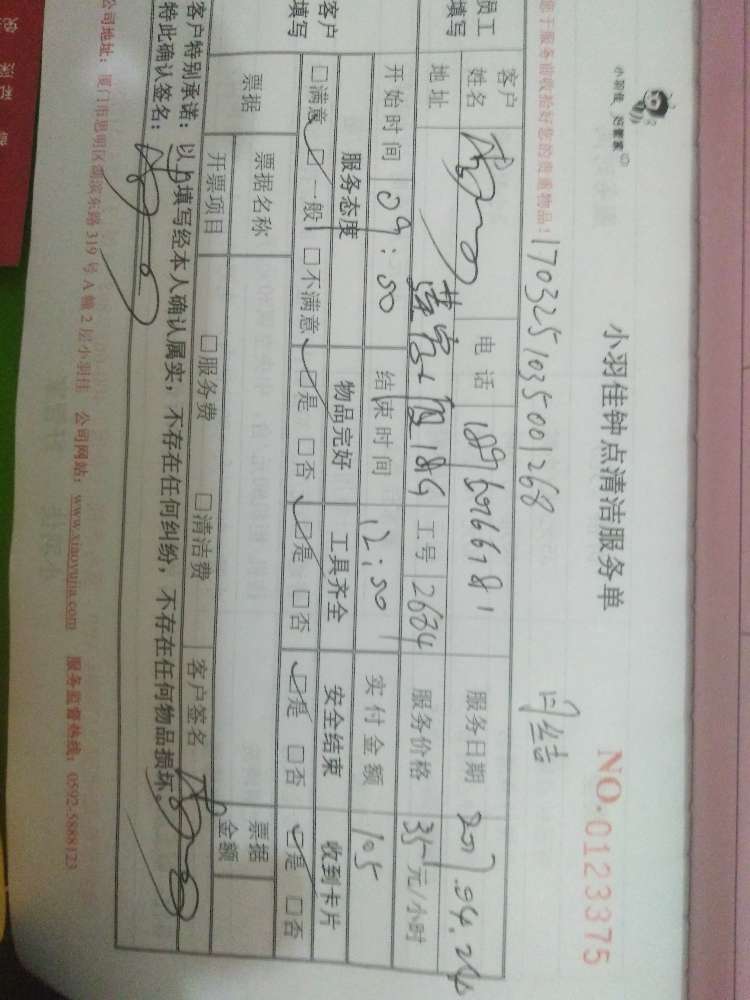 小羽佳 迟蜜蜜
小羽佳钟点清洁服务单
NO.0123375
您于服务前收拾好您的贵重物品!
1703251035001268
月结
员工填写
客户姓名 电话 服务日期 2017.04.24
地址 工号 2634 服务价格 35元/小时
开始时间 09:50 结束时间 12:50 实付金额 105
客户填写
服务态度 物品完好 工具齐全 安全结束 收到卡片
□满意 □一般 □不满意 □是 □否 □是 □否 □是 □否 □是 □否
票据 票据名称 票据金额
开票项目 □服务费 □清洁费 客户签名
客户特别承诺:以上填写经本人确认属实,不存在任何纠纷,不存在任何物品损坏。
特此确认签名:
公司地址:厦门市思明区湖滨东路319号A幢2层小羽佳 公司网站:www.xiaoyujia.com 服务监督热线:0592-5888123